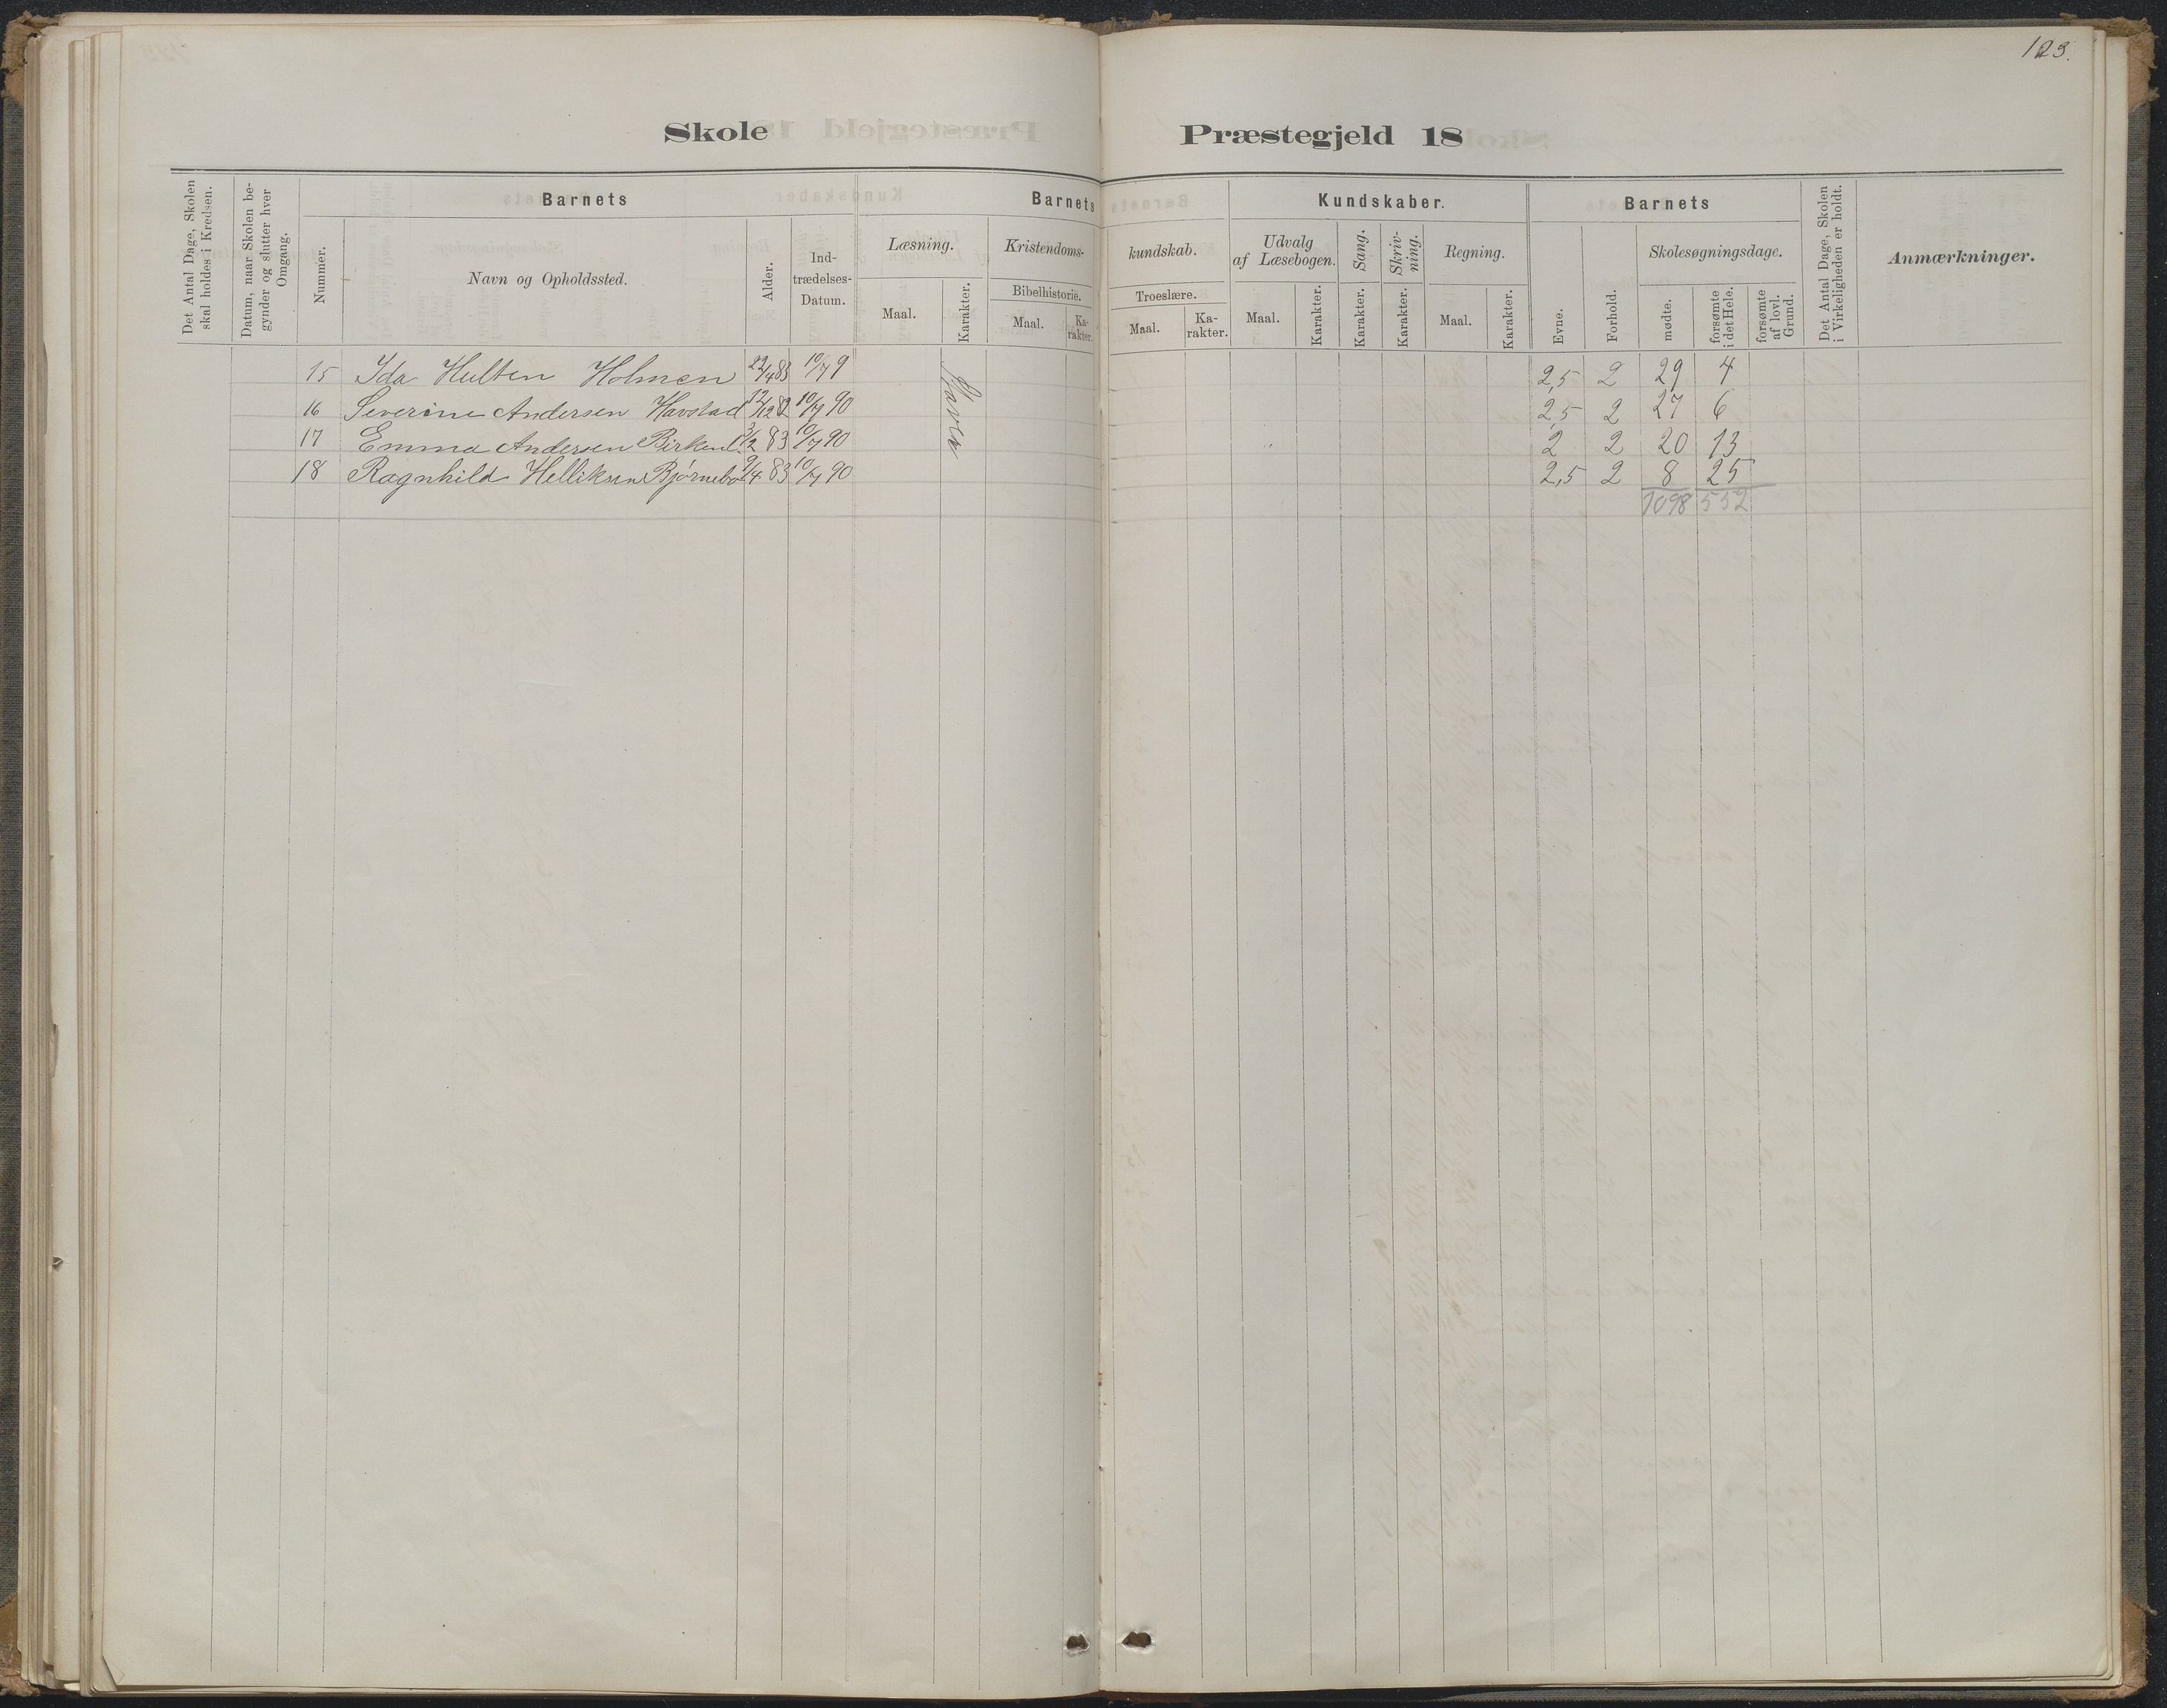 123.
Skole
Præstegjeld 18
Det Antal Dage, Skolen skal holdes i Kredsen.
Datum, naar Skolen be-
gynder og slutter hver
Omgang.
Nummer.
Barnets
Navn og Opholdssted.
Alder.
Ind-
trædelses-
Datum.
Barnets
Læsning.
Maal.
Karakter.
Kristendoms-
Bibelhistorie.
Maal.
Ka-
rakter.
kundskab.
Troeslære.
Maal.
Ka-
rakter.
Kundskaber.
Udvalg
af Læsebogen.
Maal.
Karakter.
Sang.
Karakter.
Skriv-
ning.
Karakter.
Regning.
Maal.
Karakter.
Barnets
Evne.
Forhold.
Skolesøgningsdage.
mødte.
forsømte
i det Hele.
forsømte
af lovl.
Grund.
Det Antal Dage, Skolen
i Virkeligheden er holdt.
Anmærkninger.
15 Ida Hulten Holmen 22/4 83 10/7 9 2,5 2 29 4
16 Severine Andersen Havstad 12/12 82 10/7 90 2,5 2 27 6
17 Emma Andersen Birkenl. 3/2 83 10/7 90 2 2 20 13
18 Ragnhild Helliksen Bjørnebo 9/4 83 10/7 90 2,5 2 8 25
1098 552
Staver